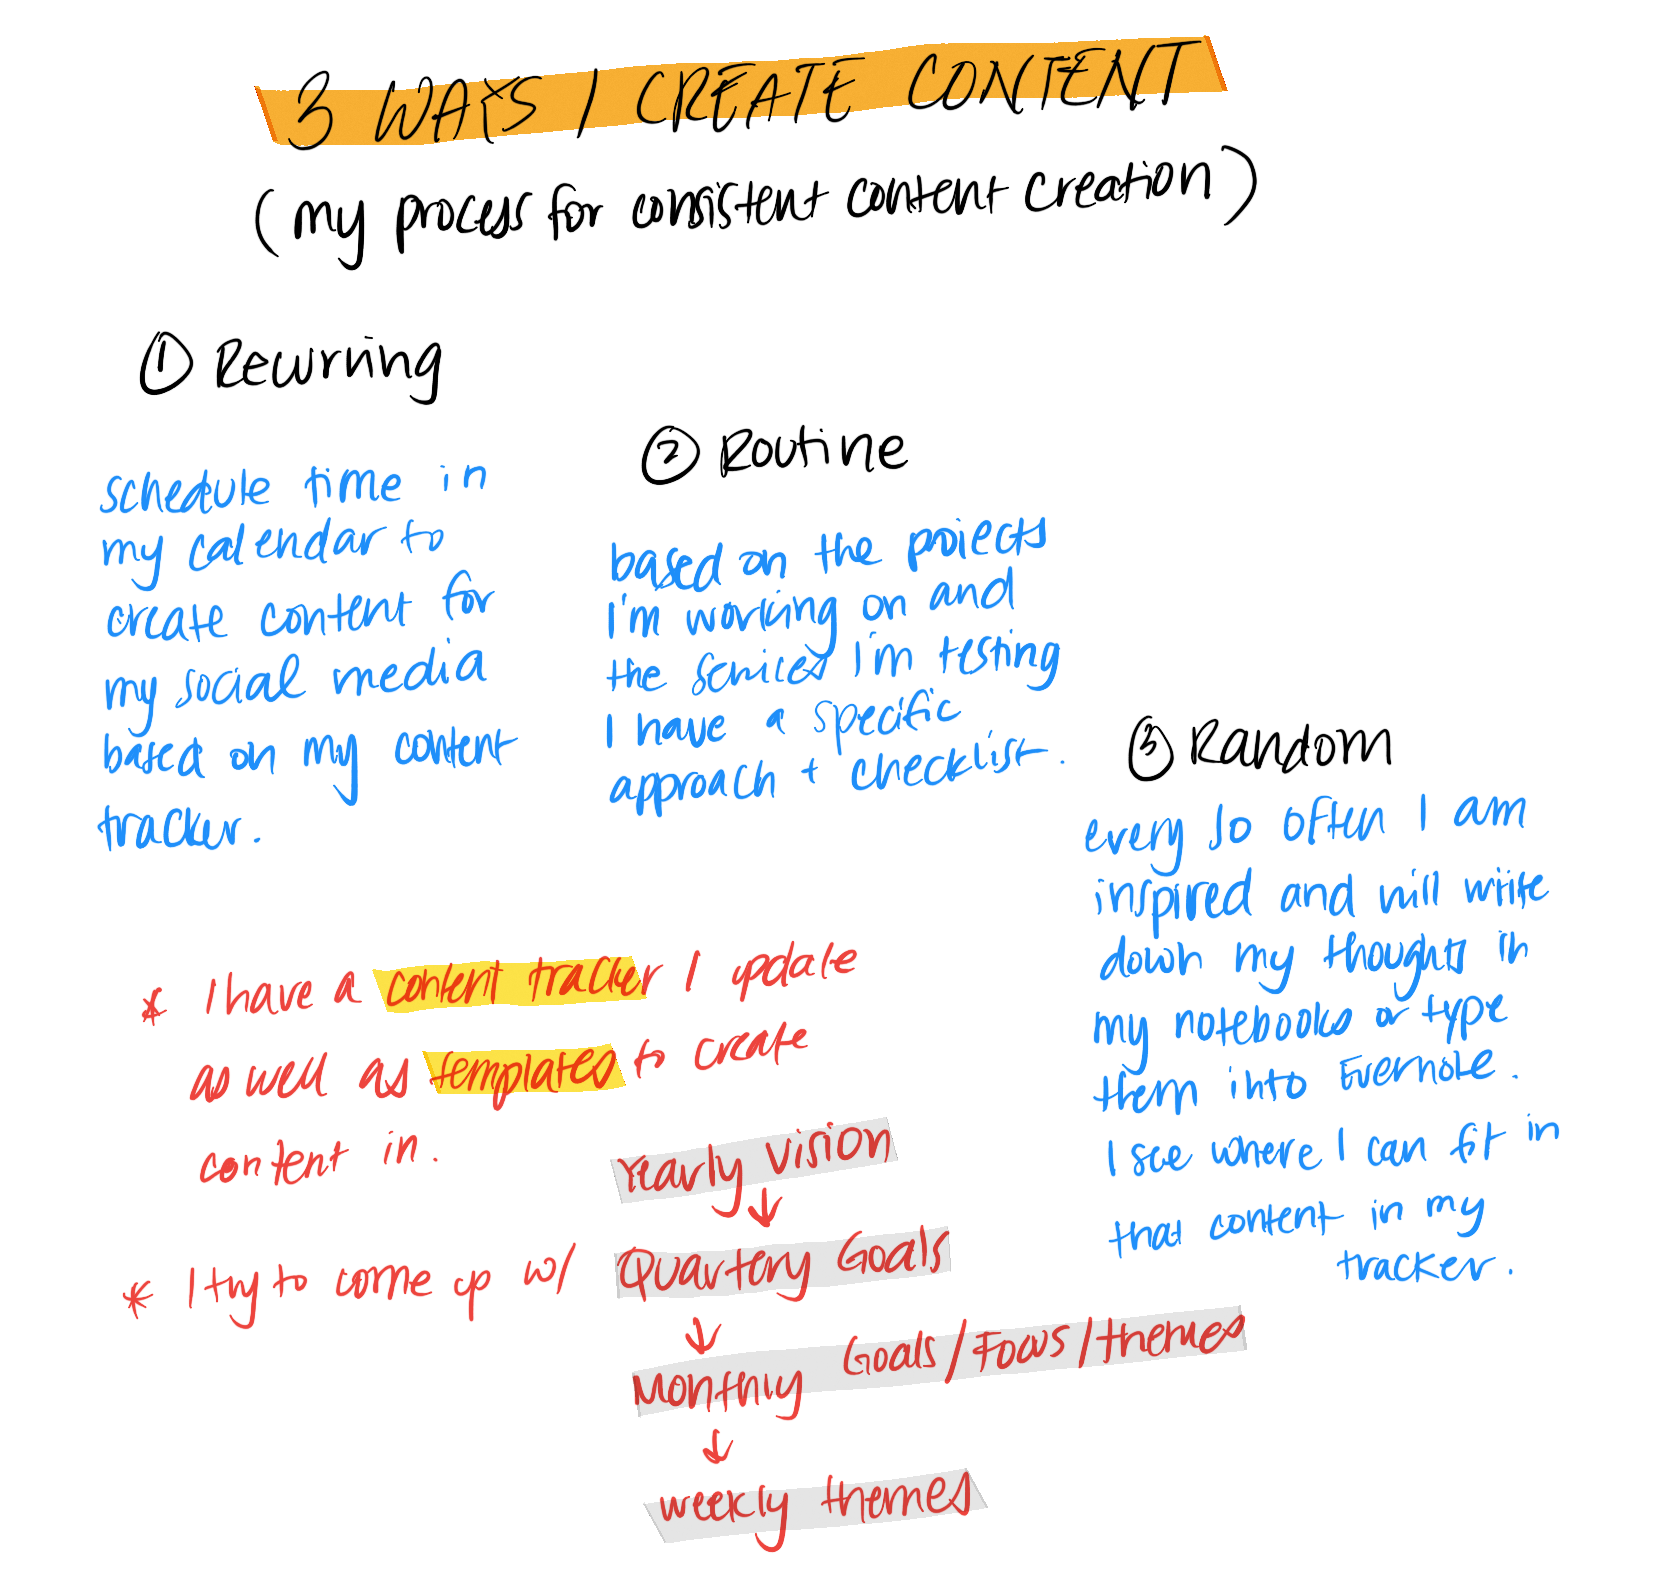 3 WAYS I CREATE CONTENT
(my process for consistent content creation)
① Recurring
schedule time in
my calendar to
create content for
my social media
based on my content
tracker.
② Routine
based on the projects
I'm working on and
the services I'm testing
I have a specific
approach + checklist.
③ Random
every so often I am
inspired and will write
down my thoughts in
my notebooks or type
them into Evernote.
I see where I can fit in
that content in my
tracker.
* I have a content tracker I update
as well as templates to create
content in.
* I try to come up w/
Yearly Vision
↓
Quarterly Goals
↓
Monthly Goals/Focus/themes
↓
weekly themes